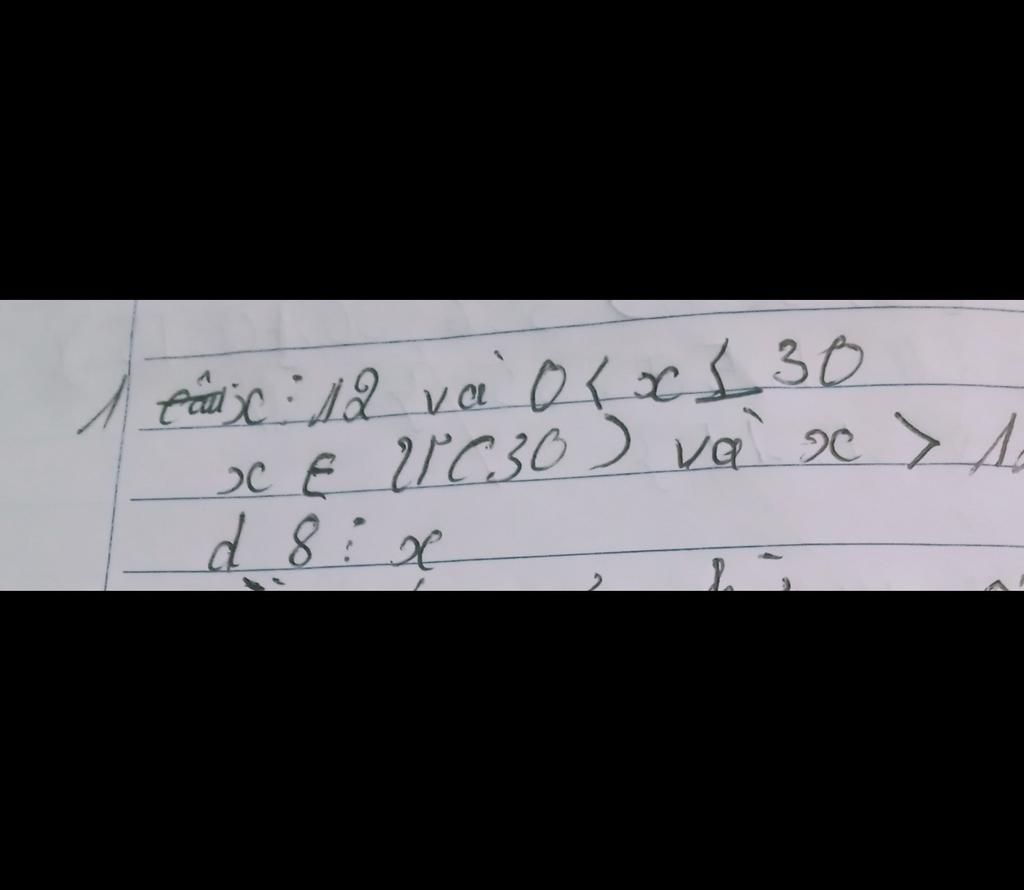 1 x ⋮ 12 và 0 < x ≤ 30
x ∈ Ư(30) và x > 1
d 8 ⋮ x